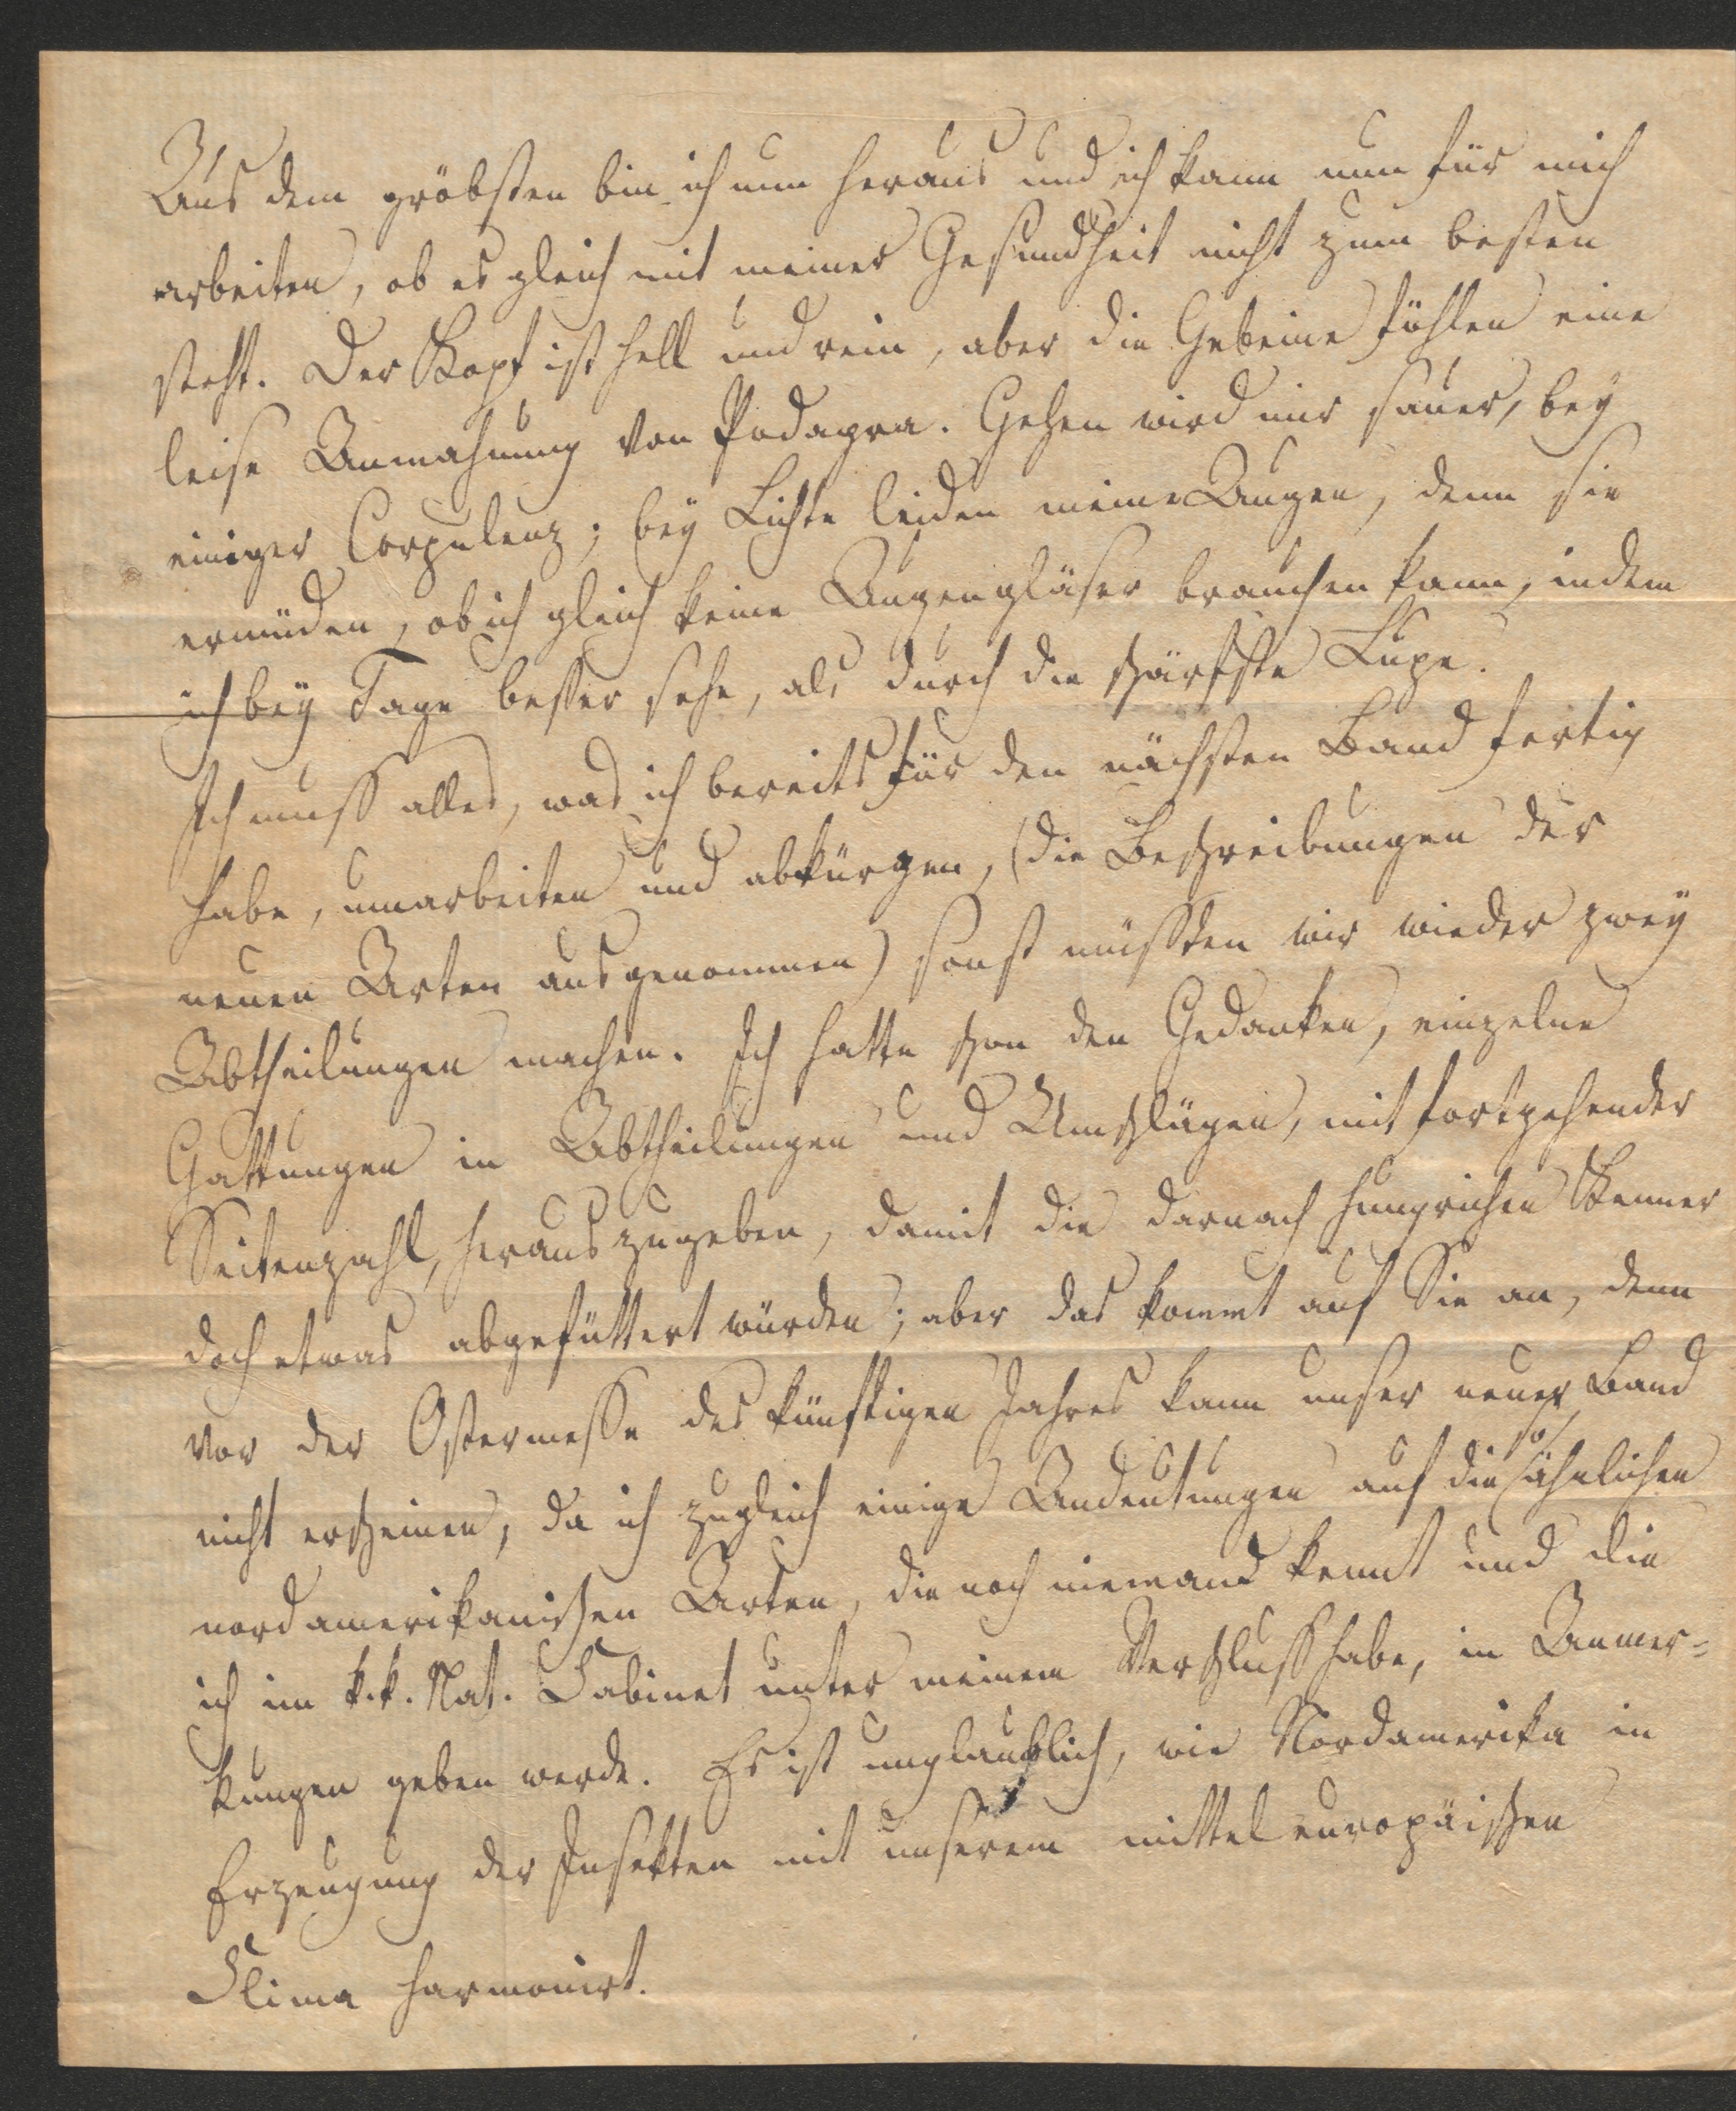 Aus dem gröbsten bin ich nun heraus und ich kann nun für mich
arbeiten, ob es gleich mit meiner Gesundheit nicht zum besten
steht. Der Kopf ist hell und rein, aber die Gebeine fühlen eine
leise Anmahnung von Podagra. Gehen wird mir sauer, bey
einiger Corpulenz; bey Lichte leiden meine Augen, denn sie
ermüden, ob ich gleich keine Augengläser brauchen kann, indem
ich bey Tage besser sehe, als durch die schärfste Lupe.
Ich muß alles, was ich bereits für den nächsten Band fertig
habe, umarbeiten und abkürzen, (die Beschreibungen der
neuen Arten ausgenommen) sonst müßten wir wieder zwey
Abtheilungen machen. Ich hatte schon den Gedanken, einzelne
Gattungen in Abtheilungen und Umschlägen, mit fortgehender
Seitenzahl, herauszugeben, damit die darnach hungrichen Kenner
doch etwas abgefüttert würden; aber das kommt auf Sie an, denn
vor der Ostermesse des künftigen Jahres kann unser neuer Band
nicht erscheinen, da ich zugleich einige Andeutungen auf die so ähnlichen
nordamerikanischen Arten, die noch niemand kennt und die
ich im k.k. Nat. Cabinet unter meinem Verschluß habe, in Anmer=
kungen geben werde. Es ist unglaublich, wie Nordamerika in
Erzeugung der Insekten mit unserem mitteleuropäischen
Clima harmonirt.